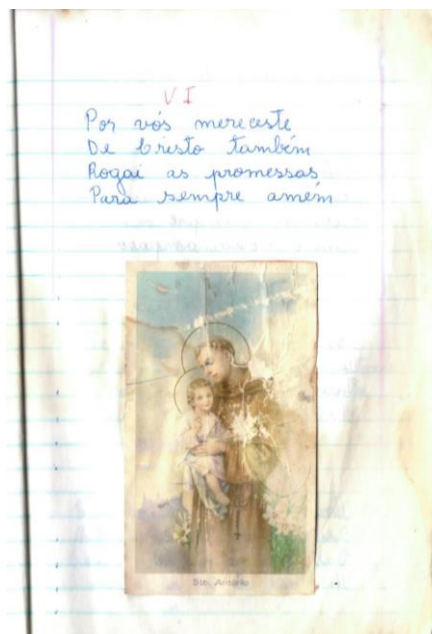 VI
Por vós mereceste
De Cristo também
Rogai as promessas
Para sempre amém
Sto. Antônio